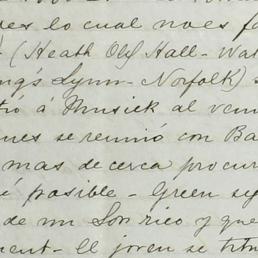 es lo cual no es fa
(Heath Old Hall - Wa
ng's Lynn - Norfolk) s
tró á Musick al ven
nes se reunió con Ba
mas de cerca procur
é posible - Green se
de un Lon rico y que
ment - El joven se titu